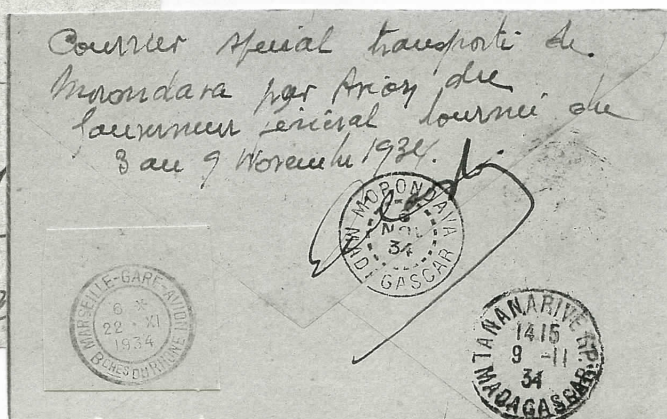 Courrier spécial transporté de
Morondava par Avion du
Gouverneur Général tournée du
3 au 9 Novembre 1934.
MORONDAVA
NOV
34
MADAGASCAR
MARSEILLE-GARE-AVION
6 *
22 · XI
1934
BCHES DU RHONE
TANANARIVE R.P.
14 15
9 -11
34
MADAGASCAR